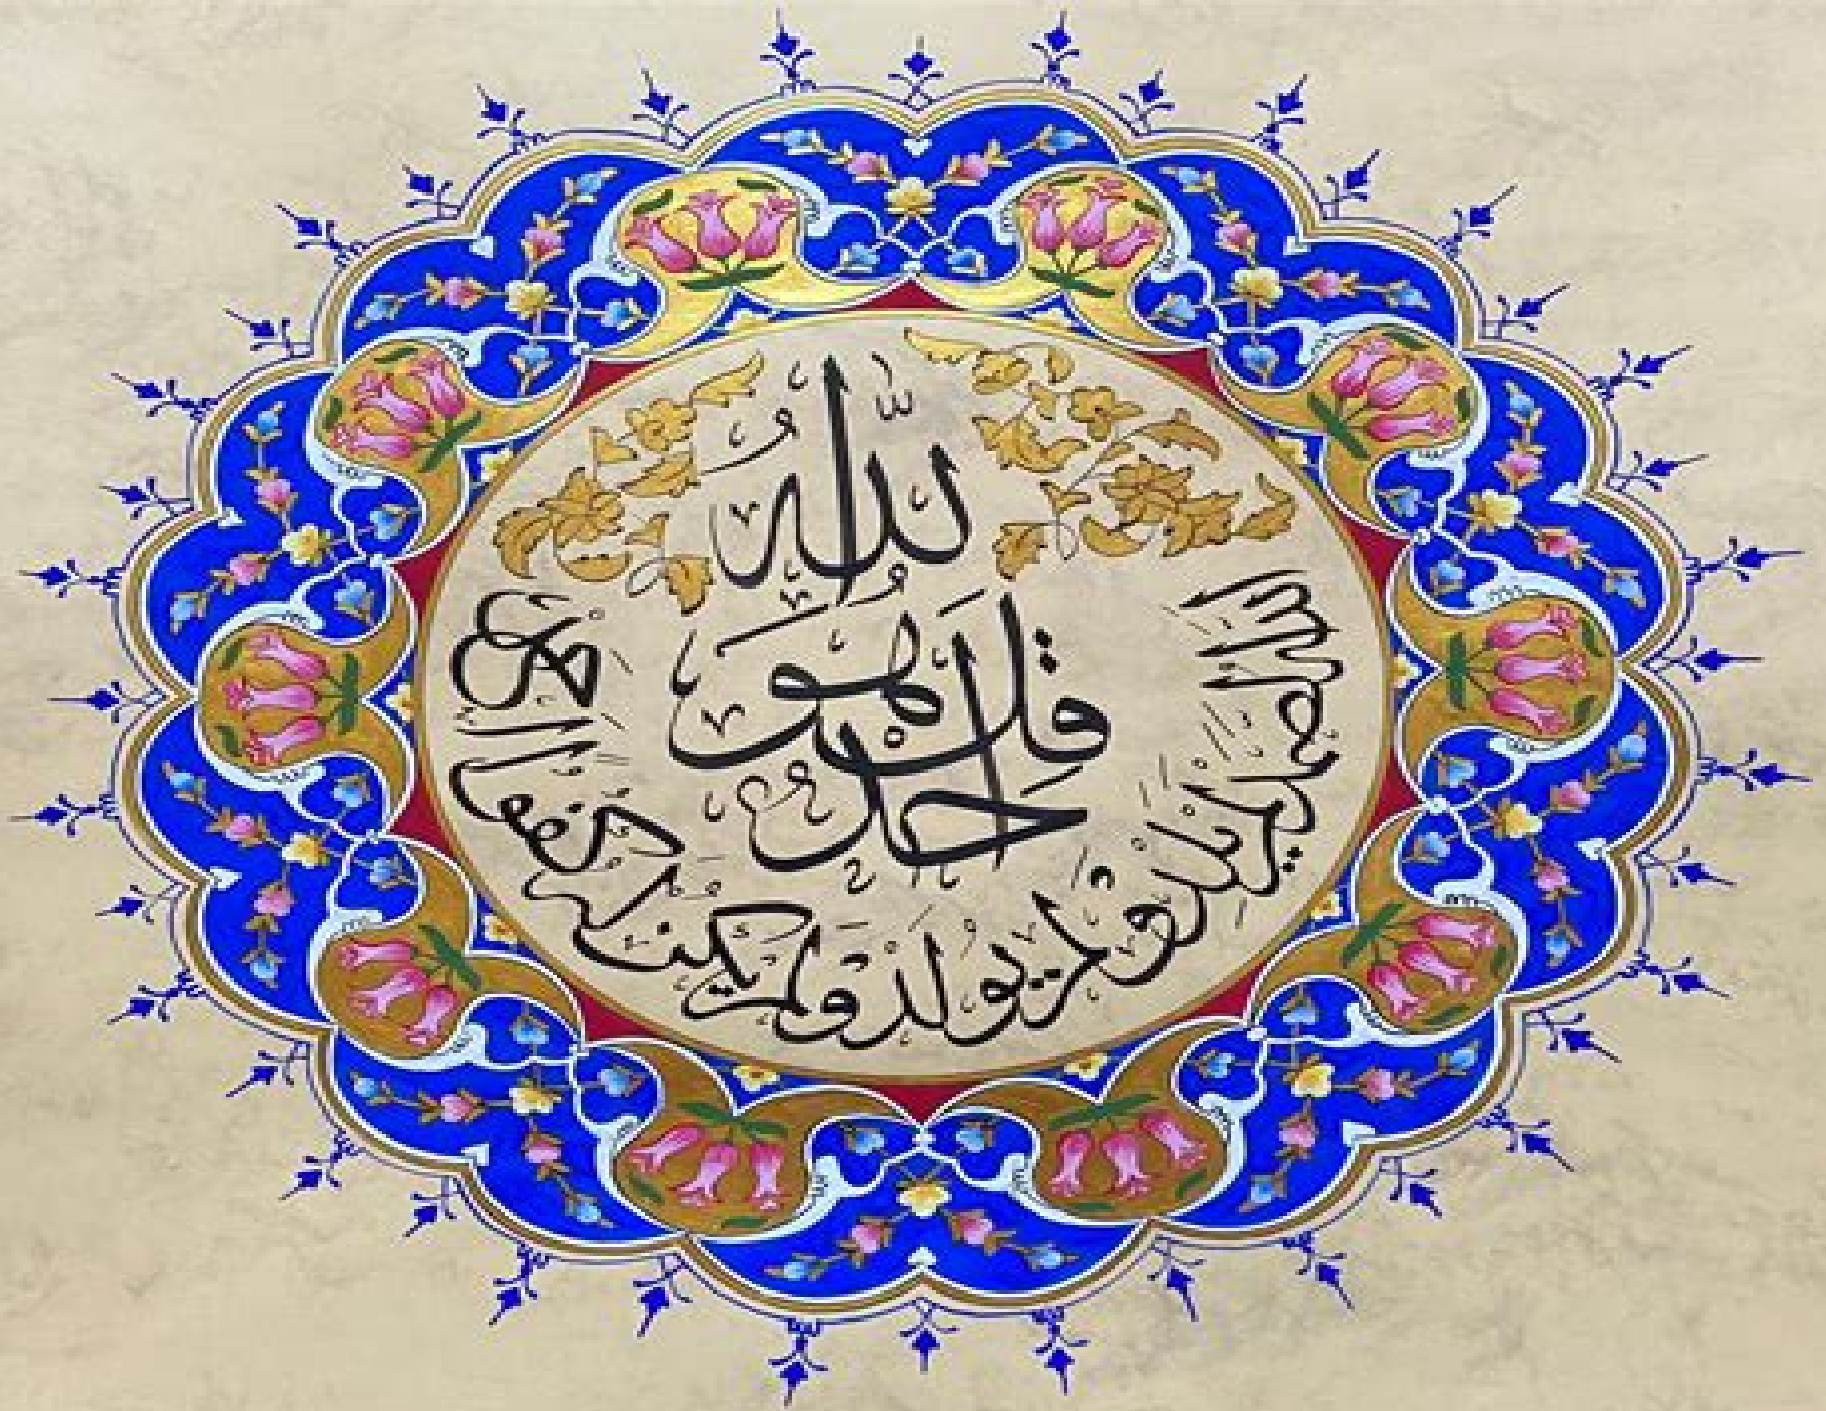 قل هو الله احد
الله الصمد لم يلد ولم يولد ولم يكن له كفوا احد